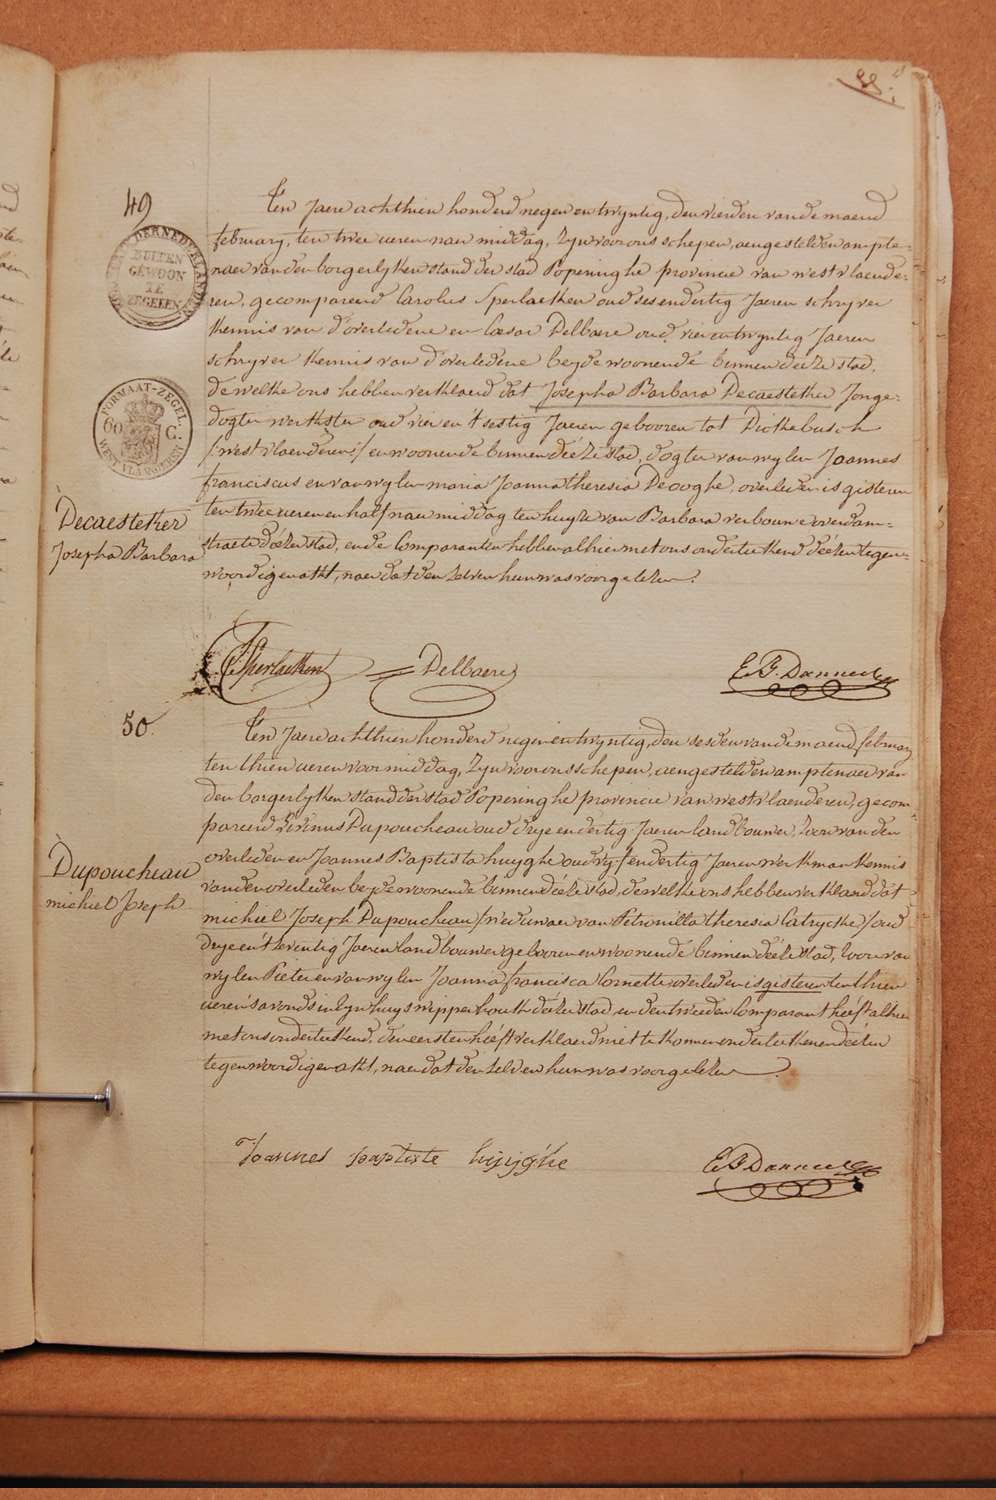 49
Ten Jaere achthien honderd negen en twyntig, den vierden van de maend
february, ten twee ueren naer middag, Zyn voor ons schepen, aengestelden ampte-
naer van den borgerlyken stand der stad Poperinghe provincie van westvlaende-
ren, gecompareerd Carolus Sperlaeken oud ses en dertig Jaeren schryver
Kennis van d'overledene en Cæsar Delbaere oud vier en twyntig Jaeren
schryver Kennis van d'overledene beyde woonende binnen deéze stad,
dewelke ons hebben verklaerd dat Josepha Barbara Decaestecker Jonge-
dogter werkster oud vier en 't sestig Jaeren gebooren tot Dickebusch
/:westvlaenderen:/ en woonende binnen deéze stad, dogter van wylen Joannes
franciscus en van wylen maria Joanna theresia Decoghe, overleden is gisteren
ten twee ueren en half naer middag ten huyze van Barbara verbouwe
straete deézer stad, en de Comparanten hebben alhier met ons onderteekend deézen tegen-
woordigen akt, naer dat den zelven hun was voorgelezen.
DER NEDERLANDEN
BUITEN
GEWOON
TE
ZEGELEN
FORMAAT-ZEGEL
60 C
WEST VLAANDEREN
Decaestecker
Josepha Barbara
C Sperlaeken
Delbaere
E. B. Danneel
50.
Ten Jaere achthien honderd negen en twyntig, den sesden van de maend february
ten thien ueren voor middag, Zyn voor ons schepen, aengestelden amptenaer van
den borgerlyken stand der stad Poperinghe provincie van westvlaenderen, gecom-
pareerd Livinus Dupoucheau oud drye en dertig Jaeren landbouwer, Zoon van den
overleden en Joannes Baptista huyghe oud vyf en dertig Jaeren werkman Kennis
van den overleden beyde woonende binnen deéze stad, dewelke ons hebben verklaerd dat
michiel Joseph Dupoucheau /weduwaer van Petronilla theresia Catrycke/ oud
drye en 't seventig Jaeren landbouwer gebooren en woonende binnen deéze stad, Zoon van
wylen Pieter en van wylen Joanna francisca Cornette overleden is gisteren ten thien
ueren s'avonds in Zyn huys wipperhoek deézer stad, en den tweeden Comparant heéft alhier
met ons onderteekend, den eersten heéft verklaerd niet te Konnen onderteekenen deézen
tegenwoordigen akt, naer dat den zelven hun was voorgelezen.
Dupoucheau
michiel Joseph
Joannes baptiste huijghe
E B Danneel